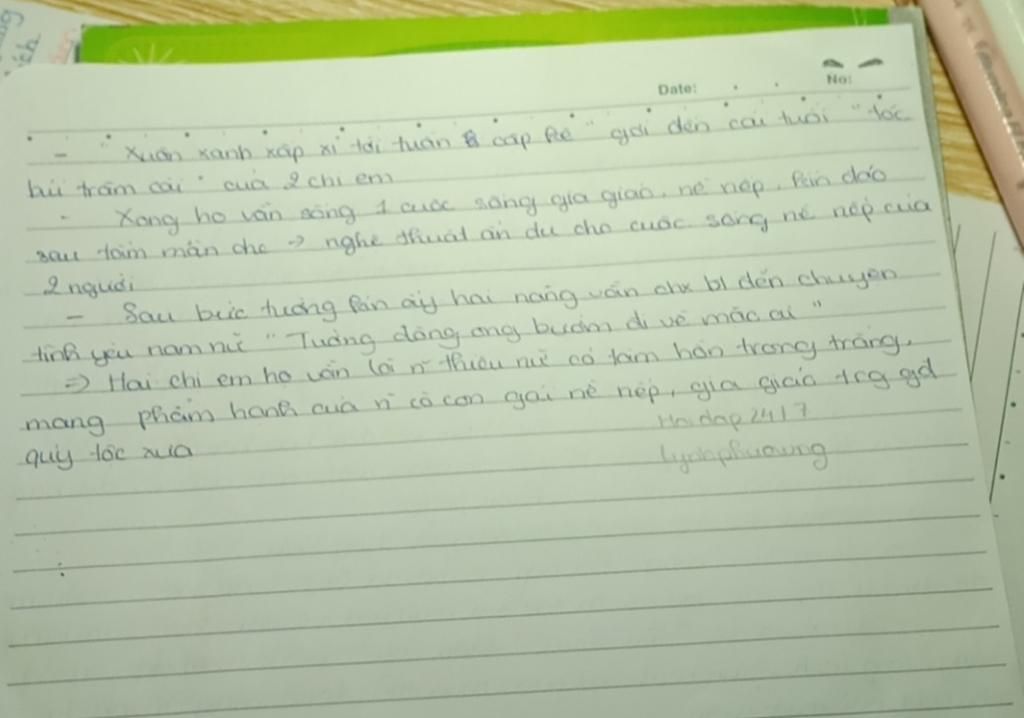 Date:
No:
- " Xuân xanh xấp xỉ tới tuần cập kê " gợi đến cái tuổi " tóc
búi trâm cài " của 2 chị em
- Xong họ vẫn sống 1 cuộc sống gia giáo, nề nếp, kín đáo
sau tấm màn che → nghệ thuật ẩn dụ cho cuộc sống nề nếp của
2 người
- Sau bức tường kín ấy hai nàng vẫn chx bt đến chuyện
tình yêu nam nữ " Tường đông ong bướm đi về mặc ai "
=> Hai chị em họ vẫn là n~ thiếu nữ có tâm hồn trong trắng,
mang phẩm hạnh của n~ cô con gái nề nếp, gia giáo trg gđ
quý tộc xưa
Hoidap247
Lyahphuowng